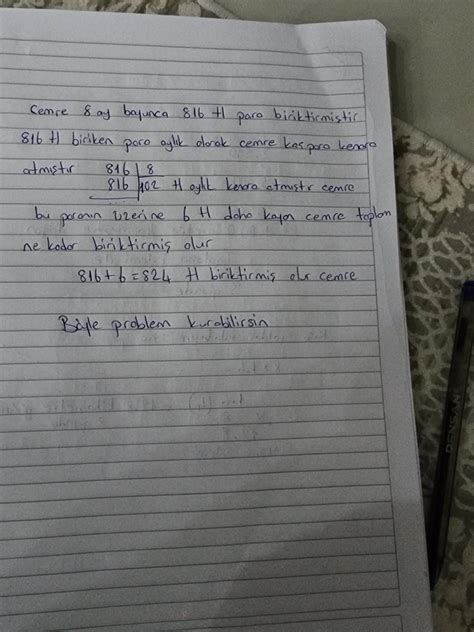 Cemre 8 ay boyunca 816 tl para biriktirmiştir
816 tl biriken para aylık olarak cemre kaç para kenara
atmıştır 816 | 8
816 | 102 tl aylık kenara atmıştır cemre
bu paranın üzerine 6 tl daha koyan cemre toplam
ne kadar biriktirmiş olur
816+6=824 tl biriktirmiş olur cemre
Böyle problem kurabilirsin
PENSAN